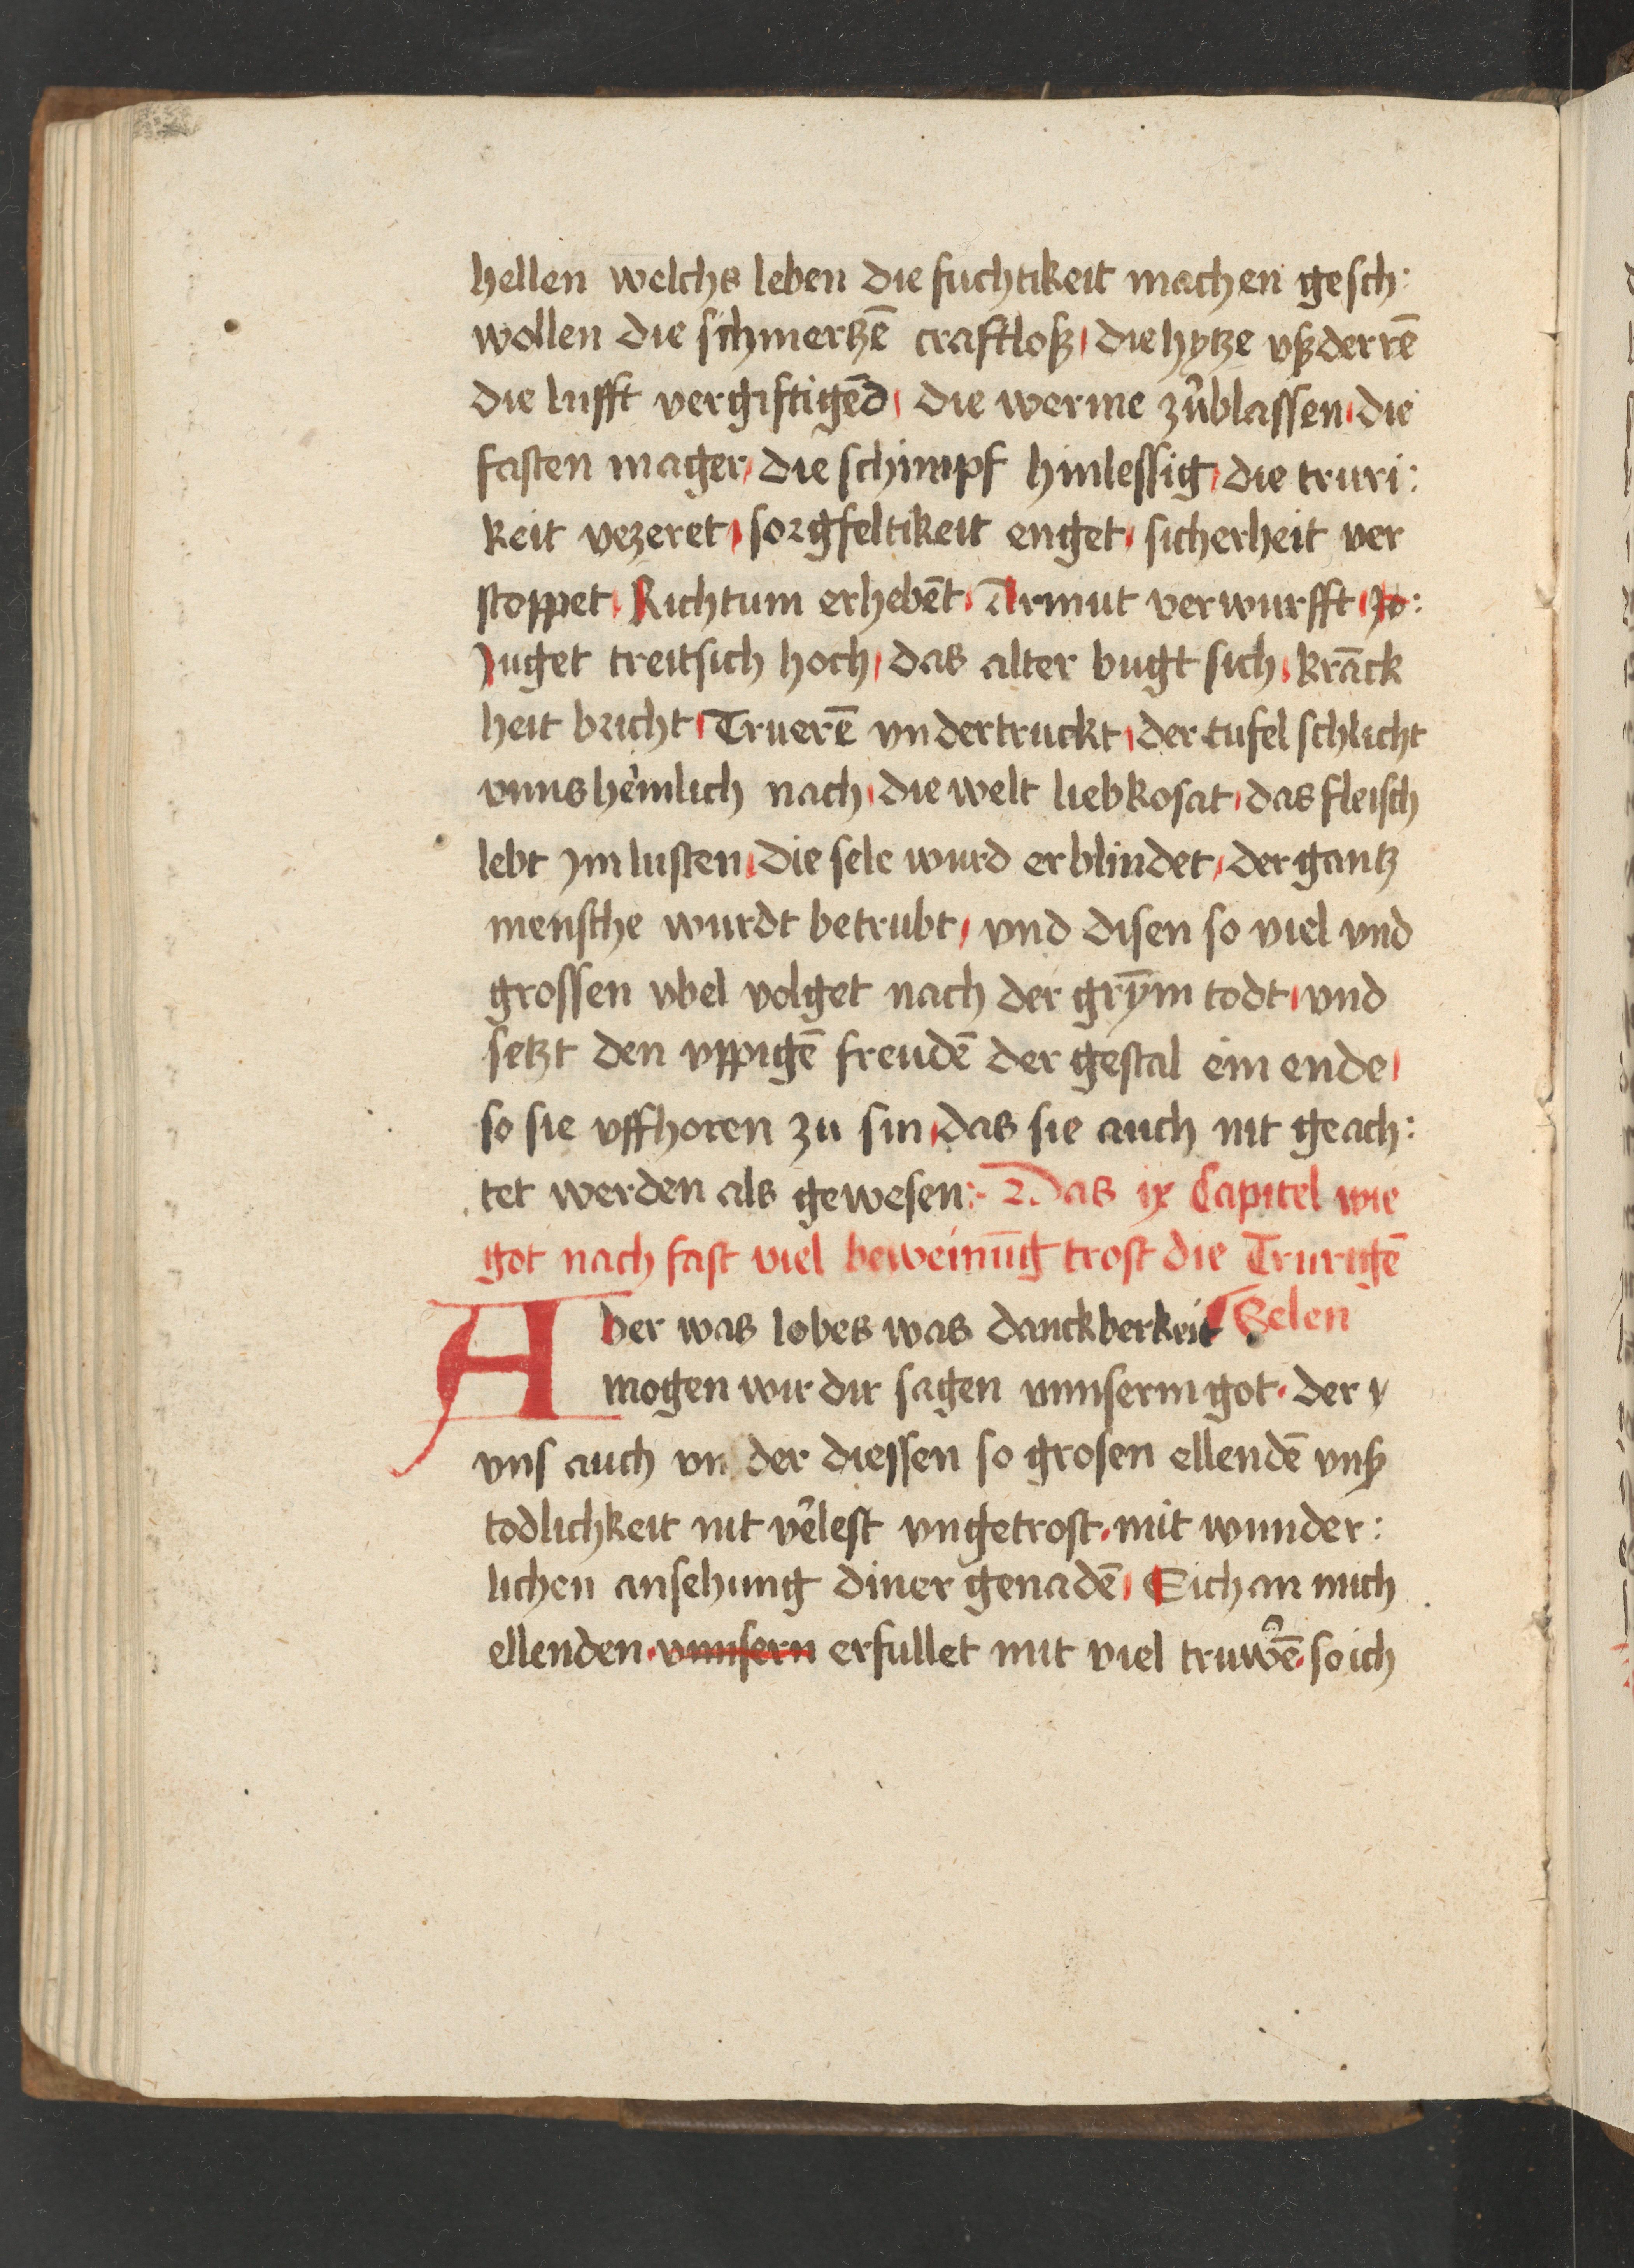 hellen welchs leben die fuchtikeit machen gesch:
wollen die schmertzē craftloß die hytze vßderrē
die lufft vergiftigēd die werme zůblassen die
fasten mager die schimpf hinlessig die truri:
keit vezeret sorgfeltikeit enget sicherheit ver
stoppet Richtum erhebēt Armut verwurfft
Juget treit sich hoch das alter bugt sich krāck
heit bricht Truerē vndertruckt der tufel schlicht
vnns hemlich nach die welt liebkosat das fleisch
lebt jm lusten die sele wurd erblindet der gantz
mensche wurdt betrubt vnd disen so viel vnd
grossen vbel volget nach der grȳm todt vnd
setzt den vppigē freudē der gestal ein ende
so sie vffhoren zu sin das sie auch nit geach:
tet werden als gewesen: Das ix Capitel wie
got nach fast viel beweinūg trost die Trurigē
Aber was lobes was danckberkeit Selen
mogen wir dir sagen vnnserm got der y
vns auch vnder diessen so grosen ellendē vnß
todlichkeit nit v̄lest vngetrost mit wunder:
lichen ansehung diner genadē Sich an mich
ellenden vnnsern erfullet mit viel truwē so ich